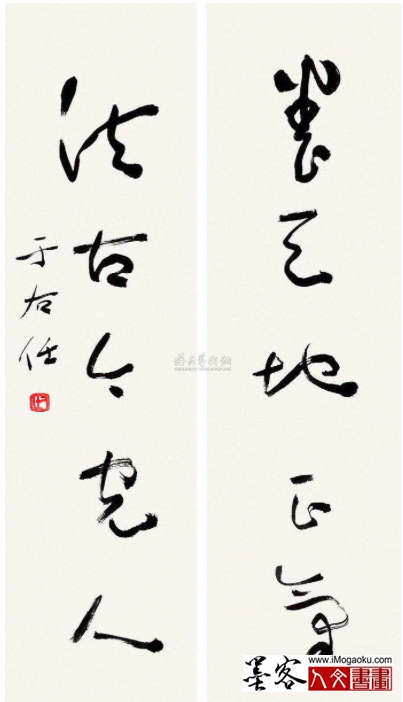 養天地正氣
法古今完人
于右任
墨客
www.iMogaoku.com
人文書畫